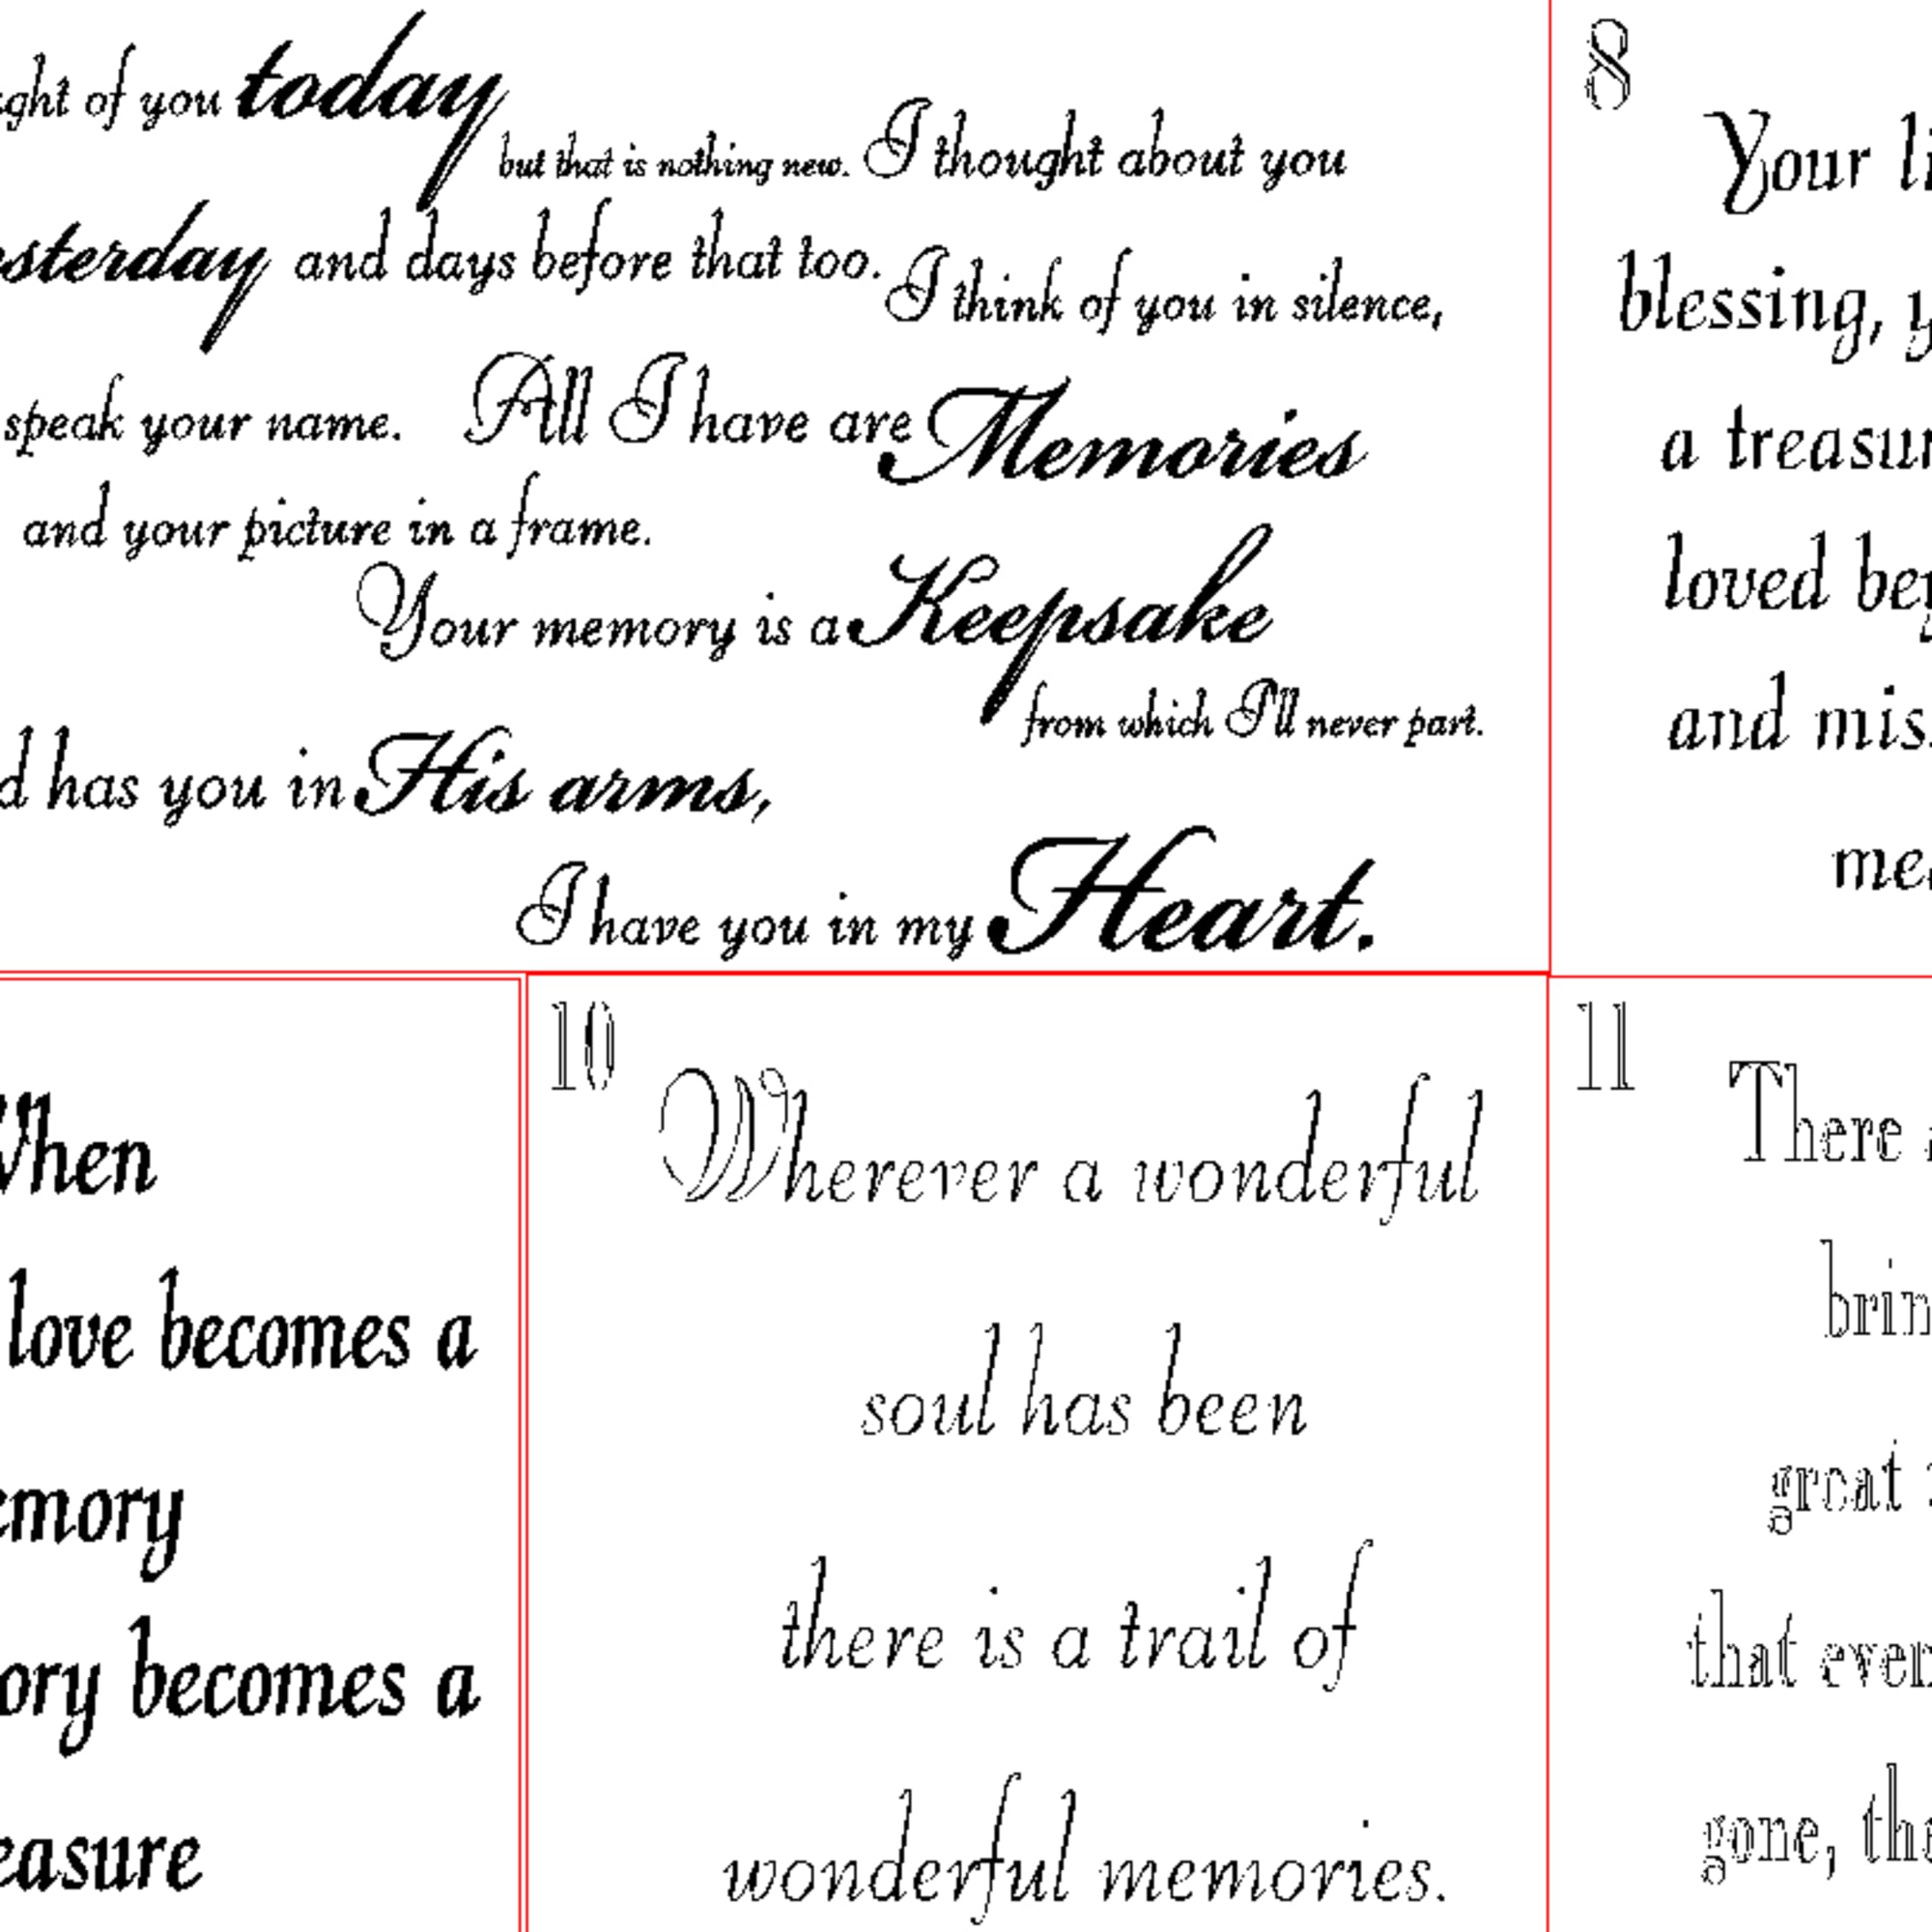 of you today
but that is nothing new. I thought about you
and days before that too. I think of you in silence,
speak your name. All I have are Memories
and your picture in a frame.
Your memory is a Keepsake
from which I'll never part.
has you in His arms,
I have you in my Heart.
8
Your
blessing,
a
loved
and
When
love becomes a
becomes a
10
Wherever a wonderful
soul has been
there is a trail of
wonderful memories.
11
There
great
that
gone,